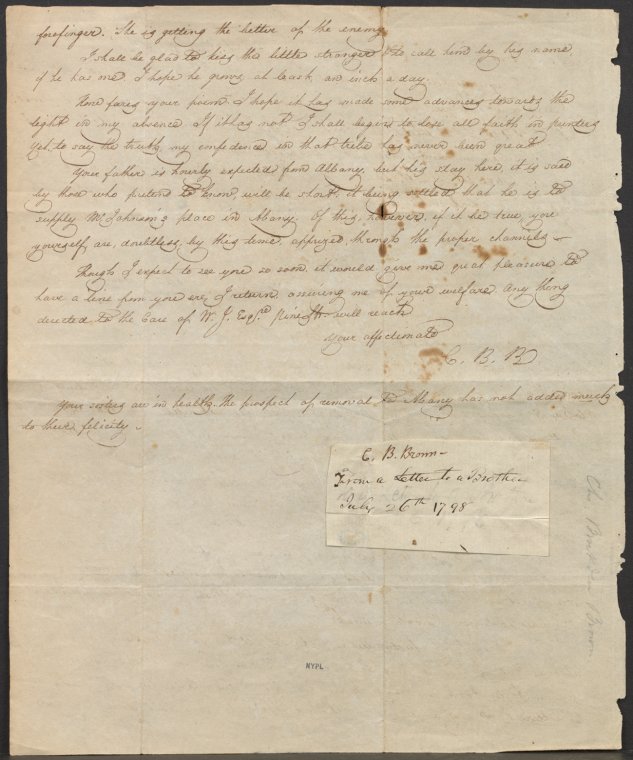 forefinger. She is getting the better of the enemy.
I shall be glad to kiss the little stranger & to call him by his name,
if he has one. I hope he grows, at least, an inch a day.
How fares your poem. I hope it has made some advances towards the
light in my absence. If it has not I shall begin to lose all faith in printers
Yet, to say the truth, my confidence in that tribe has never been great
Your father is hourly expected from Albany, but his stay here, it is said
by those who pretend to know, will be short, it being settled that he is to
supply Mr Johnson's place in Albany. Of this, however, if it be true, you
yourself, are, doubtless, by this time, apprized, through the proper channels.
Though I expect to see you so soon, it would give me great pleasure to
have a line from you ere, I return, assuring me of your welfare. Any thing
directed to the Care of W. J. Esqr. Pine St. will reach
Your affectionate
C. B. B
Your sisters are in health. The prospect of removal to Albany has not added much
to their felicity.
C. B. Brown-
From a Letter to a Brother
July 26th 1798
Ch Brockden Brown
NYPL